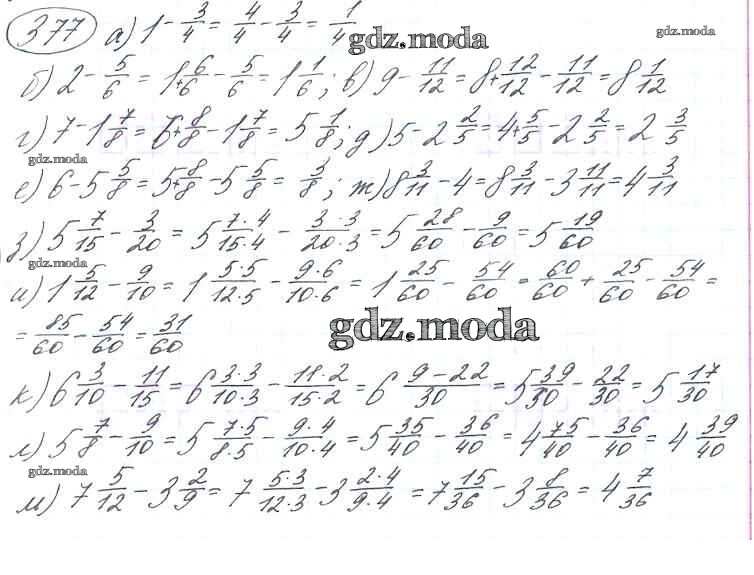 377 а) 1 - 3/4 = 4/4 - 3/4 = 1/4 gdz.moda gdz.moda
б) 2 - 5/6 = 1+6/6 - 5/6 = 1 1/6; в) 9 - 11/12 = 8+12/12 - 11/12 = 8 1/12
г) 7 - 1 7/8 = 6+8/8 - 1 7/8 = 5 1/8; д) 5 - 2 2/5 = 4+5/5 - 2 2/5 = 2 3/5
gdz.moda
е) 6 - 5 5/8 = 5+8/8 - 5 5/8 = 3/8; ж) 8 3/11 - 4 = 8 3/11 - 3 11/11 = 4 3/11
з) 5 7/15 - 3/20 = 5 7·4/15·4 - 3·3/20·3 = 5 28/60 - 9/60 = 5 19/60
gdz.moda
и) 1 5/12 - 9/10 = 1 5·5/12·5 - 9·6/10·6 = 1 25/60 - 54/60 = 60/60 + 25/60 - 54/60 =
= 85/60 - 54/60 = 31/60 gdz.moda
к) 6 3/10 - 11/15 = 6 3·3/10·3 - 11·2/15·2 = 6 9-22/30 = 5 39/30 - 22/30 = 5 17/30
л) 5 7/8 - 9/10 = 5 7·5/8·5 - 9·4/10·4 = 5 35/40 - 36/40 = 4 75/40 - 36/40 = 4 39/40
gdz.moda
м) 7 5/12 - 3 2/9 = 7 5·3/12·3 - 3 2·4/9·4 = 7 15/36 - 3 8/36 = 4 7/36